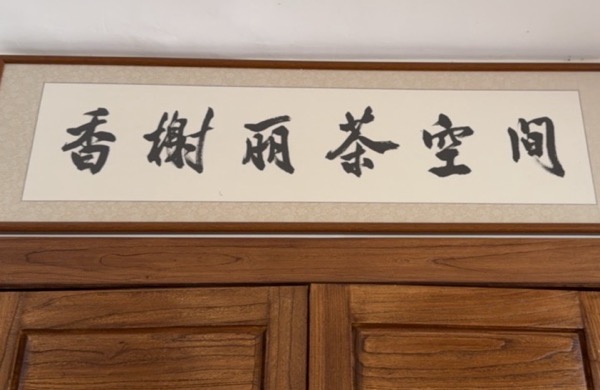 香榭丽茶空间